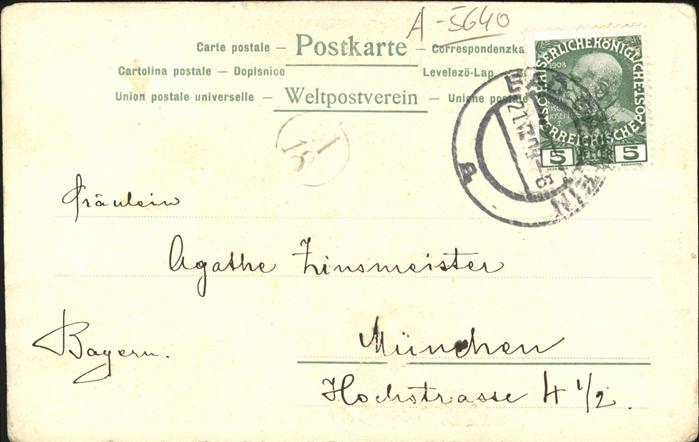 A-5640
Carte postale — Postkarte — Correspondenzka
Cartolina postale — Dopisnice Levelező-Lap
Union postale universelle — Weltpostverein — Unione posta
KAISERLICHEKÖNIGLICHE
1908
ÖSTERREICHISCHEPOST
5 5
A
Fräulein
Agathe Zinsmeister
Bayern.
München
Hochstrasse 4 1/2.